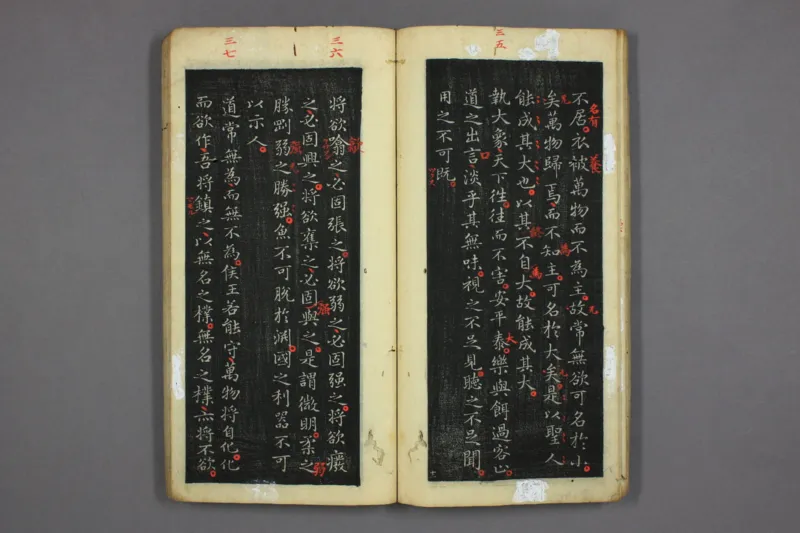 三五
不居衣被萬物而不為主故常無欲可名於小
矣萬物歸焉而不知主可名於大矣是以聖人
能成其大也以其不自大故能成其大
執大象天下徃徃而不害安平泰樂與餌過客止
道之出言淡乎其無味視之不足見聽之不足聞
用之不可既
三六
將欲噏之必固張之將欲弱之必固强之將欲癈
之必固興之將欲奪之必固與之是謂微明柔之
勝剛弱之勝强魚不可脫於淵國之利器不可
以示人
三七
道常無為而無不為侯王若能守萬物將自化化
而欲作吾將鎮之以無名之樸無名之樸亦將不欲